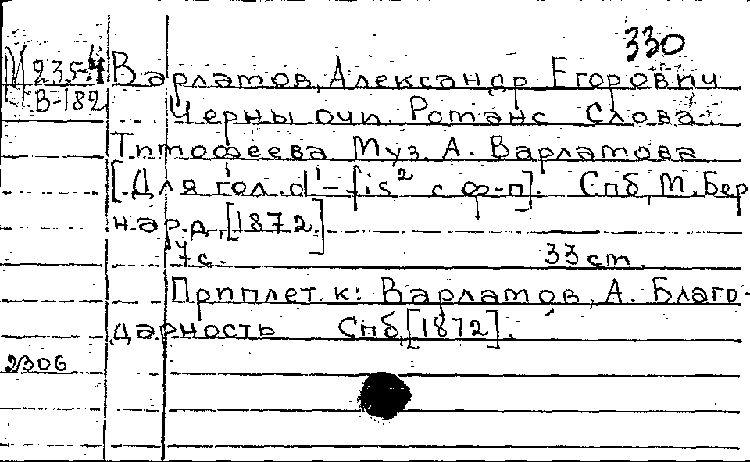 330
М 235-4 Варламов, Александр Егорович
В-182 Черны очи. Романс Слова
Тимофеева Муз. А. Варламова
[Для гол. d¹-fis² с ф-п]. Спб, М. Бер
нард, [1872.]
7 с. 33 cm.
Приплет. к: Варламов, А. Благо-
дарность Спб, [1872].
2306